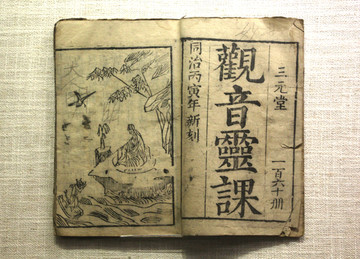 三元堂
一百六十册
觀音靈課
同治丙寅年新刻